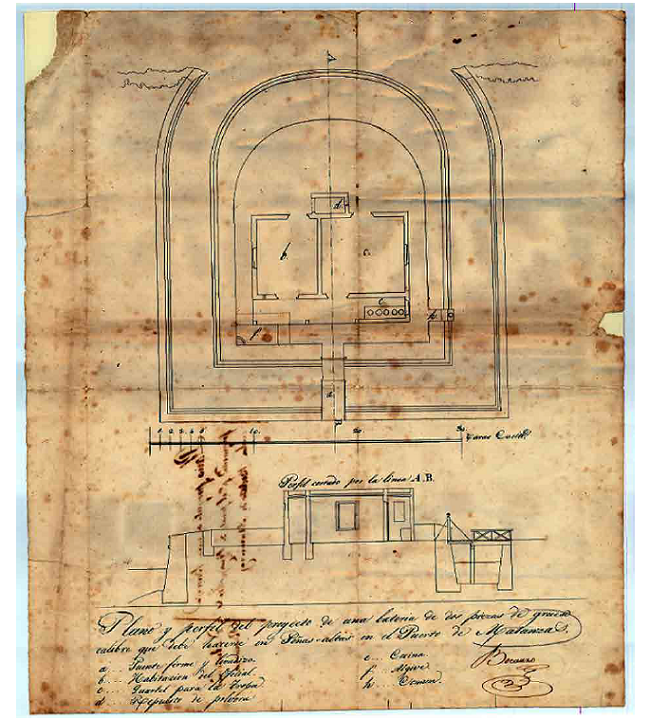 A
b
c
d
e
f
h
a
B
1 2 3 4 5 10. 20. 30. Varas Castell.
Perfil cortado por la linea A.B.
Plano y perfil del proyecto de una bateria de dos piezas de grueso
calibre que debe hacerse en Peñas-altas en el Puerto de Matanzas.
a... Puente firme y
b... Habitacion del Oficial.
c... Quartel para la Tropa.
d... Repuesto de polvora
e... Cocina.
f... Algive.
h... Comun.